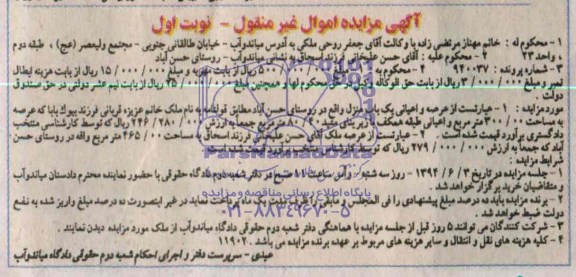 آگهی مزایده اموال غیر منقول - نوبت اول
۱ - محکوم له : خانم مهناز مرتضی زاده با وکالت آقای جعفر روحی ملکی به آدرس میاندوآب - خیابان طالقانی جنوبی - مجتمع ولیعصر (عج) ، طبقه دوم
، واحد ۲۳ ۲ - محکوم علیه : آقای حسن علیخانی فرزند اسحاق به نشانی میاندوآب - روستای حسن آباد
۳ - شماره پرونده : ۹۲۰۰۳۷ ۴ - محکوم به ۵۰۰/۰۰۰ ریال از بابت مهریه و مبلغ ۱۵/۰۰۰/۰۰۰ ریال از بابت هزینه ایطال
تمبر و مبلغ ۳/۰۰۰/۰۰۰ ریال از بابت حق الوکاله وکیل در حق محکوم لها و همچنین مبلغ ۲۵/۰۰۰/۰۰۰ ریال از بابت نیم عشر دولتی در حق صندوق
دولت
مورد مزایده : ۱ - عبارتست از عرصه و اعیانی یک باب منزل واقع در روستای حسن آباد مطابق قولنامه به نام ملک خانم عزیزه قربانی فرزند بیوک پاپا که عرصه
به مساحت ۳۰۰/۰۰ مترمربع و اعیانی طبقه همکف با زیربنای مفید ۸۰/۲۰ مترمربع جمعاً به ارزش ۲۴۶/۲۸۰/۰۰۰ ریال که توسط کارشناسی منتخب
دادگستری برآورد قیمت شده است . ۲ - عبارتست از عرصه ملک آقای حسن علیخانی فرزند اسحاق به مساحت ۴۶۵/۰۰ متر مربع واقع در روستای حسن
آباد که جمعاً به ارزش ۲۷۹/۰۰۰/۰۰۰ ریال که توسط کارشناس منتخب برآورد قیمت شده است
شرایط مزایده :
۱ - جلسه مزایده در تاریخ ۱۳۹۴/۶/۳ - روز سه شنبه - رأس ساعت ۱۱ صبح در دفتر شعبه دوم دادگاه حقوقی با حضور نماینده محترم دادستان میاندوآب
و متقاضیان خرید برگزار خواهد شد .
۲ - برنده مزایده باید ده درصد مبلغ پیشنهادی را فی المجلس و مابقی را ظرف مهلت یک ماه پرداخت نماید در غیر اینصورت ده درصد مبلغ واریز شده به نفع
دولت ضبط خواهد شد .
۳ - شرکت کنندگان می توانند ۵ روز قبل از جلسه مزایده با هماهنگی دفتر شعبه دوم دادگاه میاندوآب از ملک مورد مزایده دیدن نمایند .
۴ - کلیه هزینه های نقل و انتقال و سایر هزینه های مربوط بر عهده برنده مزایده می باشد . ۱۱۹۰۲
عبدی - سرپرست دفتر و اجرای احکام شعبه دوم حقوقی دادگاه میاندوآب
ParsNamadData
پایگاه اطلاع رسانی مناقصه و مزایده
۰۲۱-۸۸۳۴۹۶۷۰-۵